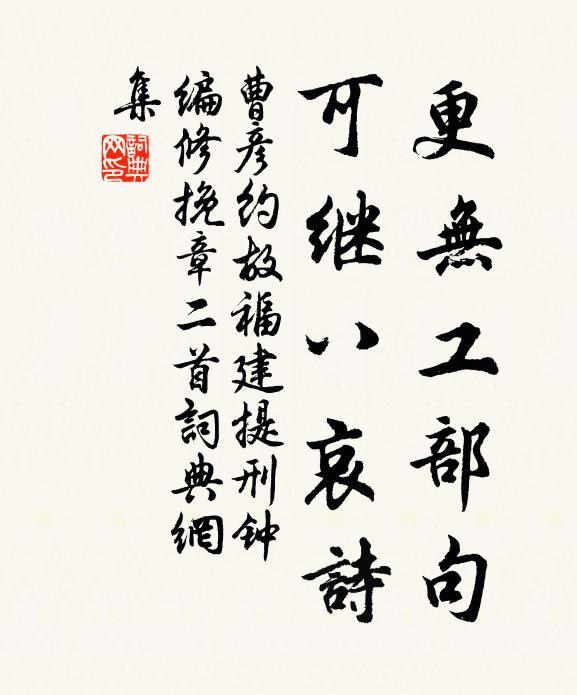 更無工部句
可继八哀詩
曹彦約故福建提刑钟
編修挽章二首詞典網
集
詞典网印